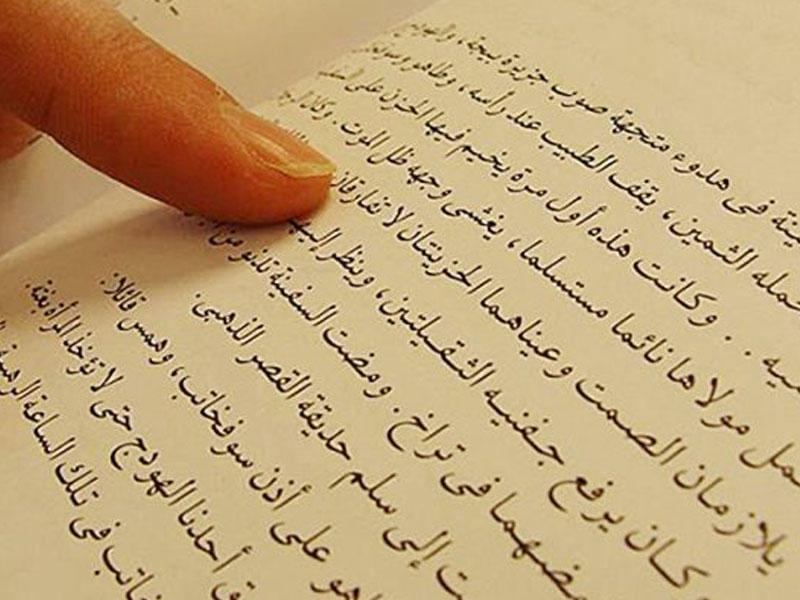 ينة فى هدوء متجهة صوب جزيرة بيجة، والهودج
حمله الثمين، يقف الطبيب عند رأسه، وطاهو وسوفخاتب
مية.. وكانت هذه أول مرة يخيم فيها الحزن على السفينة
مل مولاها نائما مستسلما، يغشى وجهه ظل الموت. وكان الرجلان
يلازمان الصمت وعيناهما الحزينتان لا تفارقان
وكان يرفع جفنيه الثقيلتين، وينظر إليهما
مضهما فى تراخ. ومضت السفينة تدنو من
ت إلى سلم حديقة القصر الذهبى.
اهو على أذن سوفخاتب، وهمس قائلا:
ق أحدنا الهودج حتى لا تؤخذ المرأة بغتة.
خاتب فى تلك الساعة الرهيبة